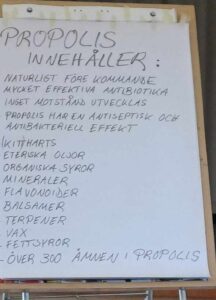 PROPOLIS
INNEHÅLLER:
NATURLIGT FÖRE KOMMANDE
MYCKET EFFEKTIVA ANTIBIOTIKA
INGET MOTSTÅND UTVECKLAS
PROPOLIS HAR EN ANTISEPTISK OCH
ANTIBAKTERIELL EFFEKT
(KITT)HARTS
ETERISKA OLJOR
ORGANISKA SYROR
MINERALER
FLAVONOIDER
BALSAMER
TERPENER
VAX
FETTSYROR
-ÖVER 300 ÄMNEN I PROPOLIS